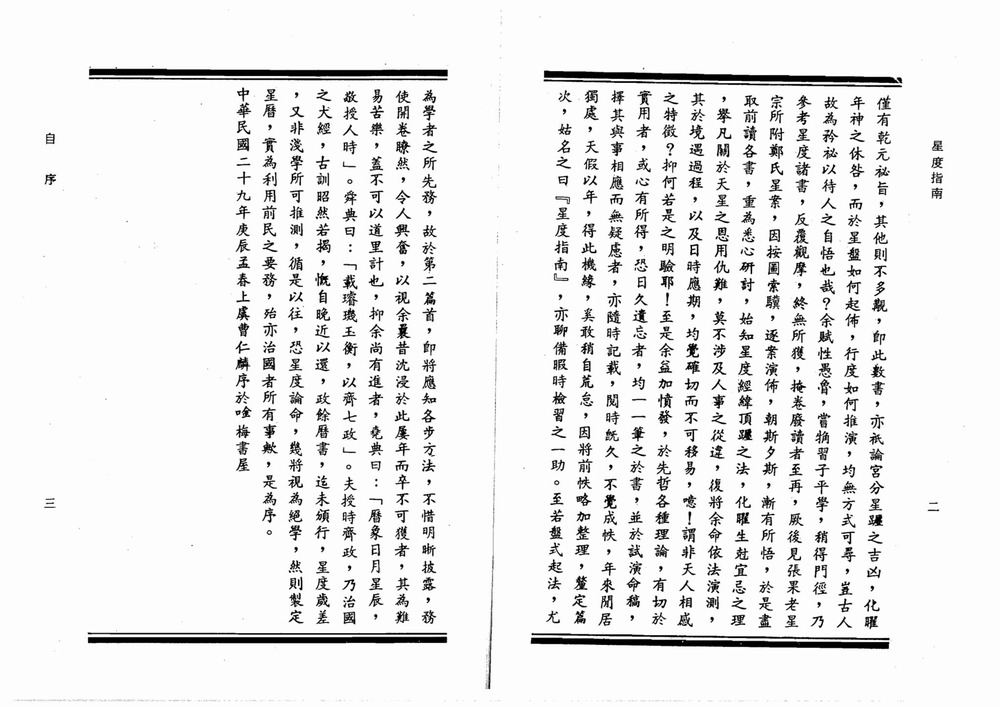 星度指南
二
僅有乾元祕旨,其他則不多覯,即此數書,亦祇論宮分星躔之吉凶,化曜
年神之休咎,而於星盤如何起佈,行度如何推演,均無方式可尋,豈古人
故為矜祕以待人之自悟也哉?余賦性愚魯,嘗猏習子平學,稍得門徑,乃
參考星度諸書,反覆觀摩,終無所獲,掩卷廢讀者至再,厥後見張果老星
宗所附鄭氏星案,因按圖索驥,逐案演佈,朝斯夕斯,漸有所悟,於是盡
取前讀各書,重為悉心研討,始知星度經緯頂躔之法,化曜生尅宜忌之理
,舉凡關於天星之恩用仇難,莫不涉及人事之從違,復將余命依法演測,
其於境遇過程,以及日時應期,均覺確切而不可移易,噫!謂非天人相感
之特徵?抑何若是之明驗耶!至是余益加憤發,於先哲各種理論,有切於
實用者,或心有所得,恐日久遺忘者,均一一筆之於書,並於試演命稿,
擇其與事相應而無疑慮者,亦隨時記載,閱時旣久,不覺成帙,年來閒居
獨處,天假以年,得此機緣,奚敢稍自荒怠,因將前帙略加整理,釐定篇
次,姑名之曰『星度指南』,亦聊備暇時檢習之一助。至若盤式起法,尤
為學者之所先務,故於第二篇首,即將應知各步方法,不惜明晰披露,務
使開卷瞭然,令人興奮,以視余曩昔沈浸於此屢年而卒不可獲者,其為難
易苦樂,蓋不可以道里計也,抑余尚有進者,堯典曰:「曆象日月星辰,
敬授人時」。舜典曰:「載璿璣玉衡,以齊七政」。夫授時齊政,乃治國
之大經,古訓昭然若揭,慨自晚近以還,政餘曆書,迄未頒行,星度歲差
,又非淺學所可推測,循是以往,恐星度論命,幾將視為絕學,然則製定
星曆,實為利用前民之要務,殆亦治國者所有事歟,是為序。
中華民國二十九年庚辰孟春上虞曹仁麟序於唫梅書屋
自序
三